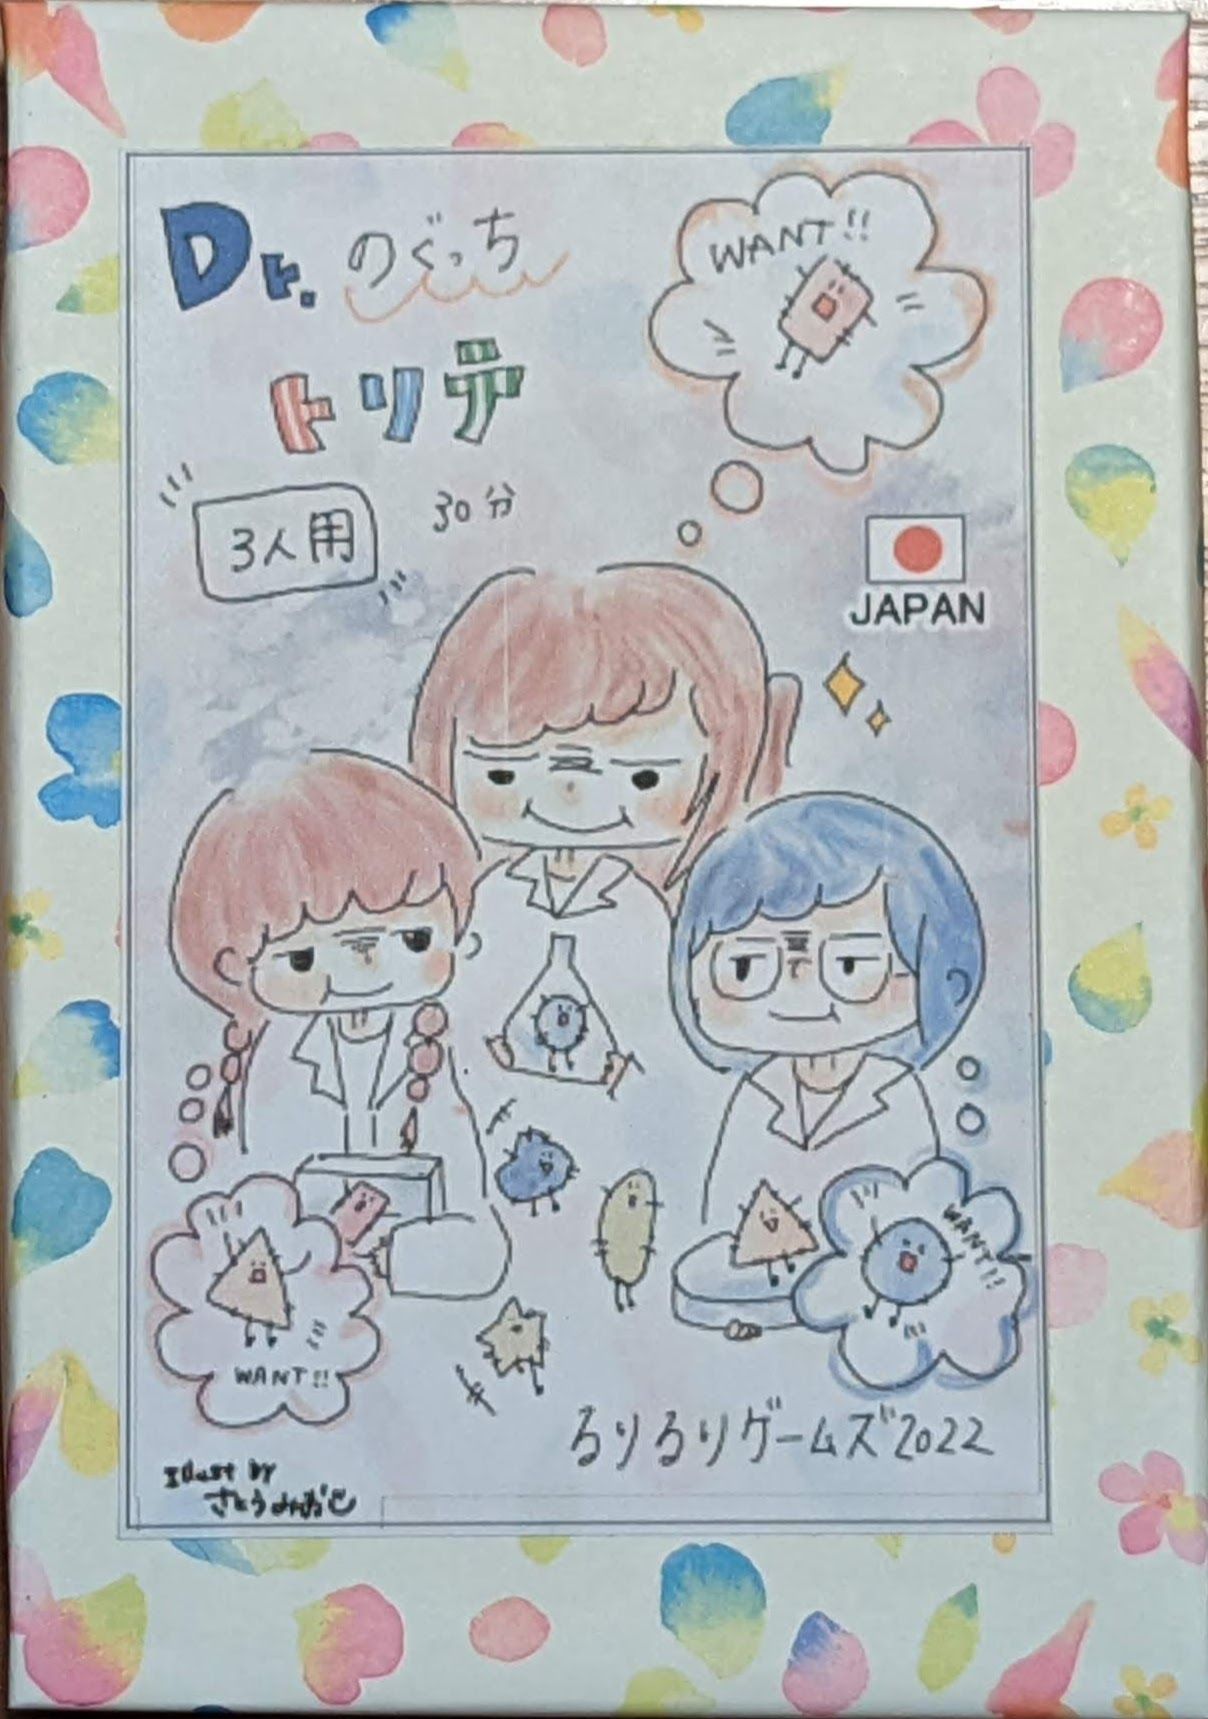 Dr. のぐっち
トリテ
3人用
30分
WANT!!
JAPAN
WANT!!
WANT!!
るりるりゲームズ2022
Illust by